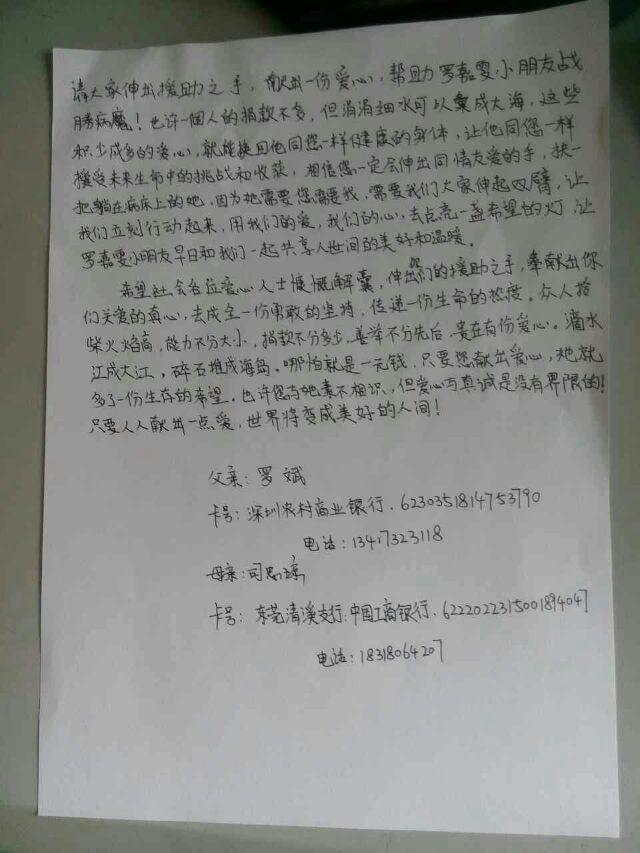 请大家伸出援助之手，献出一份爱心，帮助罗嘉雯小朋友战
胜病魔！也许一個人的捐款不多，但涓涓细水可以集成大海，这些
积少成多的爱心，就能换回他同您一样健康的身体，让他同您一样
接受未来生命中的挑战和收获，相信您一定会伸出同情友爱的手，扶一
把躺在病床上的她，因为她需要您需要我，需要我们大家伸起双臂，让
我们立刻行动起来，用我们的爱，我们的心，去点亮一盏希望的灯，让
罗嘉雯小朋友早日和我们一起共享人世间的美好和温暖。
希望社会各位爱心人士慷慨解囊，伸出你们的援助之手，奉献出你
们关爱的真心，去成全一份勇敢的坚持，传递一份生命的热度。众人拾
柴火焰高，能力不分大小，捐款不分多少，善举不分先后，贵在有份爱心。滴水
汇成大江，碎石堆成海岛。哪怕就是一元钱，只要您献出爱心，她就
多了一份生存的希望。也许您与她素不相识，但爱心与真诚是没有界限的！
只要人人献出一点爱，世界将变成美好的人间！
父亲：罗斌
卡号：深圳农村商业银行．6230351814753790
电话：13417323118
母亲：司思琼
卡号：东莞清溪支行：中国工商银行．6222022315001894047
电话：18318064207